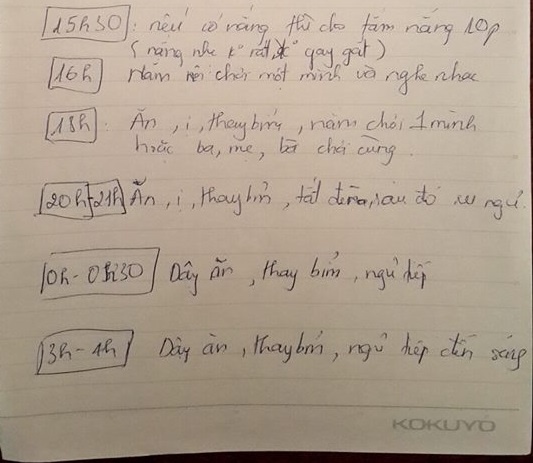 15h30 : nếu có nắng thì cho tắm nắng 10p
( nắng nhẹ k° rất, k° gay gắt )
16h Nằm nôi chơi một mình và nghe nhạc
18h : Ăn, ị, thay bỉm, nằm chơi 1 mình
hoặc ba, mẹ, bà chơi cùng.
20h-21h Ăn, ị, thay bỉm, tắt đèn, sau đó ru ngủ.
0h - 0h30 Dậy ăn, thay bỉm, ngủ tiếp
3h - 4h Dậy ăn, thay bỉm, ngủ tiếp đến sáng
KOKUYO